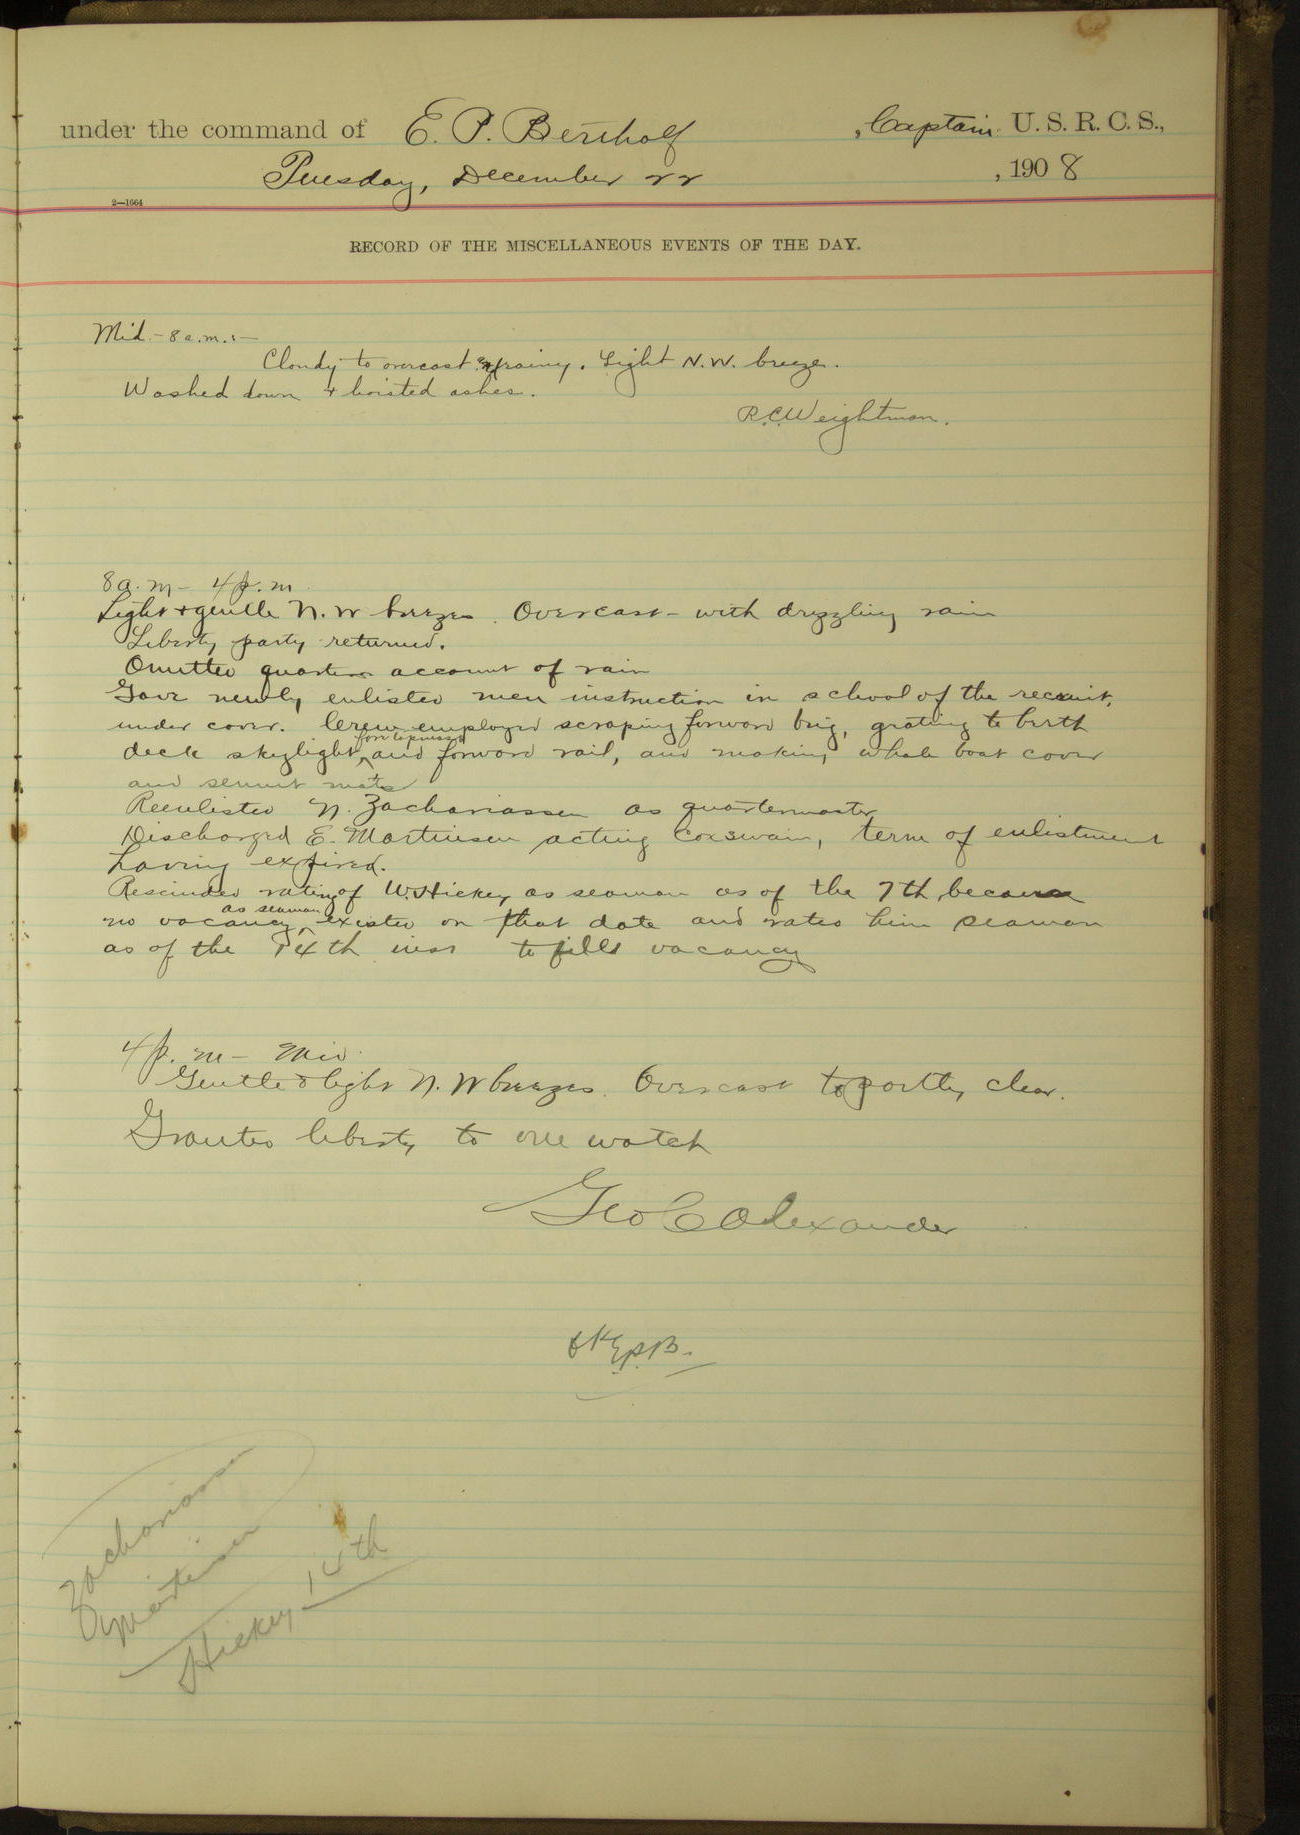 under the command of E. P. Bertholf, Captain U. S. R. C. S.,
Tuesday, December 22, 1908
2—1664
RECORD OF THE MISCELLANEOUS EVENTS OF THE DAY.
Mid. - 8 a.m.:-
Cloudy to overcast & rainy. Light N.W. breeze.
Washed down & hoisted ashes.
R.C. Weightman.
8 a.m - 4 p.m
Light & gentle N.W breezes. Overcast - with drizzling rain
Liberty party returned.
Omitted quarters account of rain
Gave newly enlisted men instruction in school of the recruit,
under cover. Crew employed scraping forward brig, grating to berth
deck skylight, and forward rail, and making whale boat cover
and sennit mats
Reenlisted N. Zachariassen as quartermaster
Discharged E. Martinsen acting coxswain, term of enlistment
having expired.
Rescinded rating of W. Hickey as seaman as of the 7th, because
no vacancy as seaman existed on that date and rated him seaman
as of the 14th inst to fill vacancy
4 p. m - Mid.
Gentle & light N. W breezes. Overcast to partly clear.
Granted liberty to one watch
Geo C Alexander
OK E.P.B.
Zachariassen
Martinsen
Hickey 14th